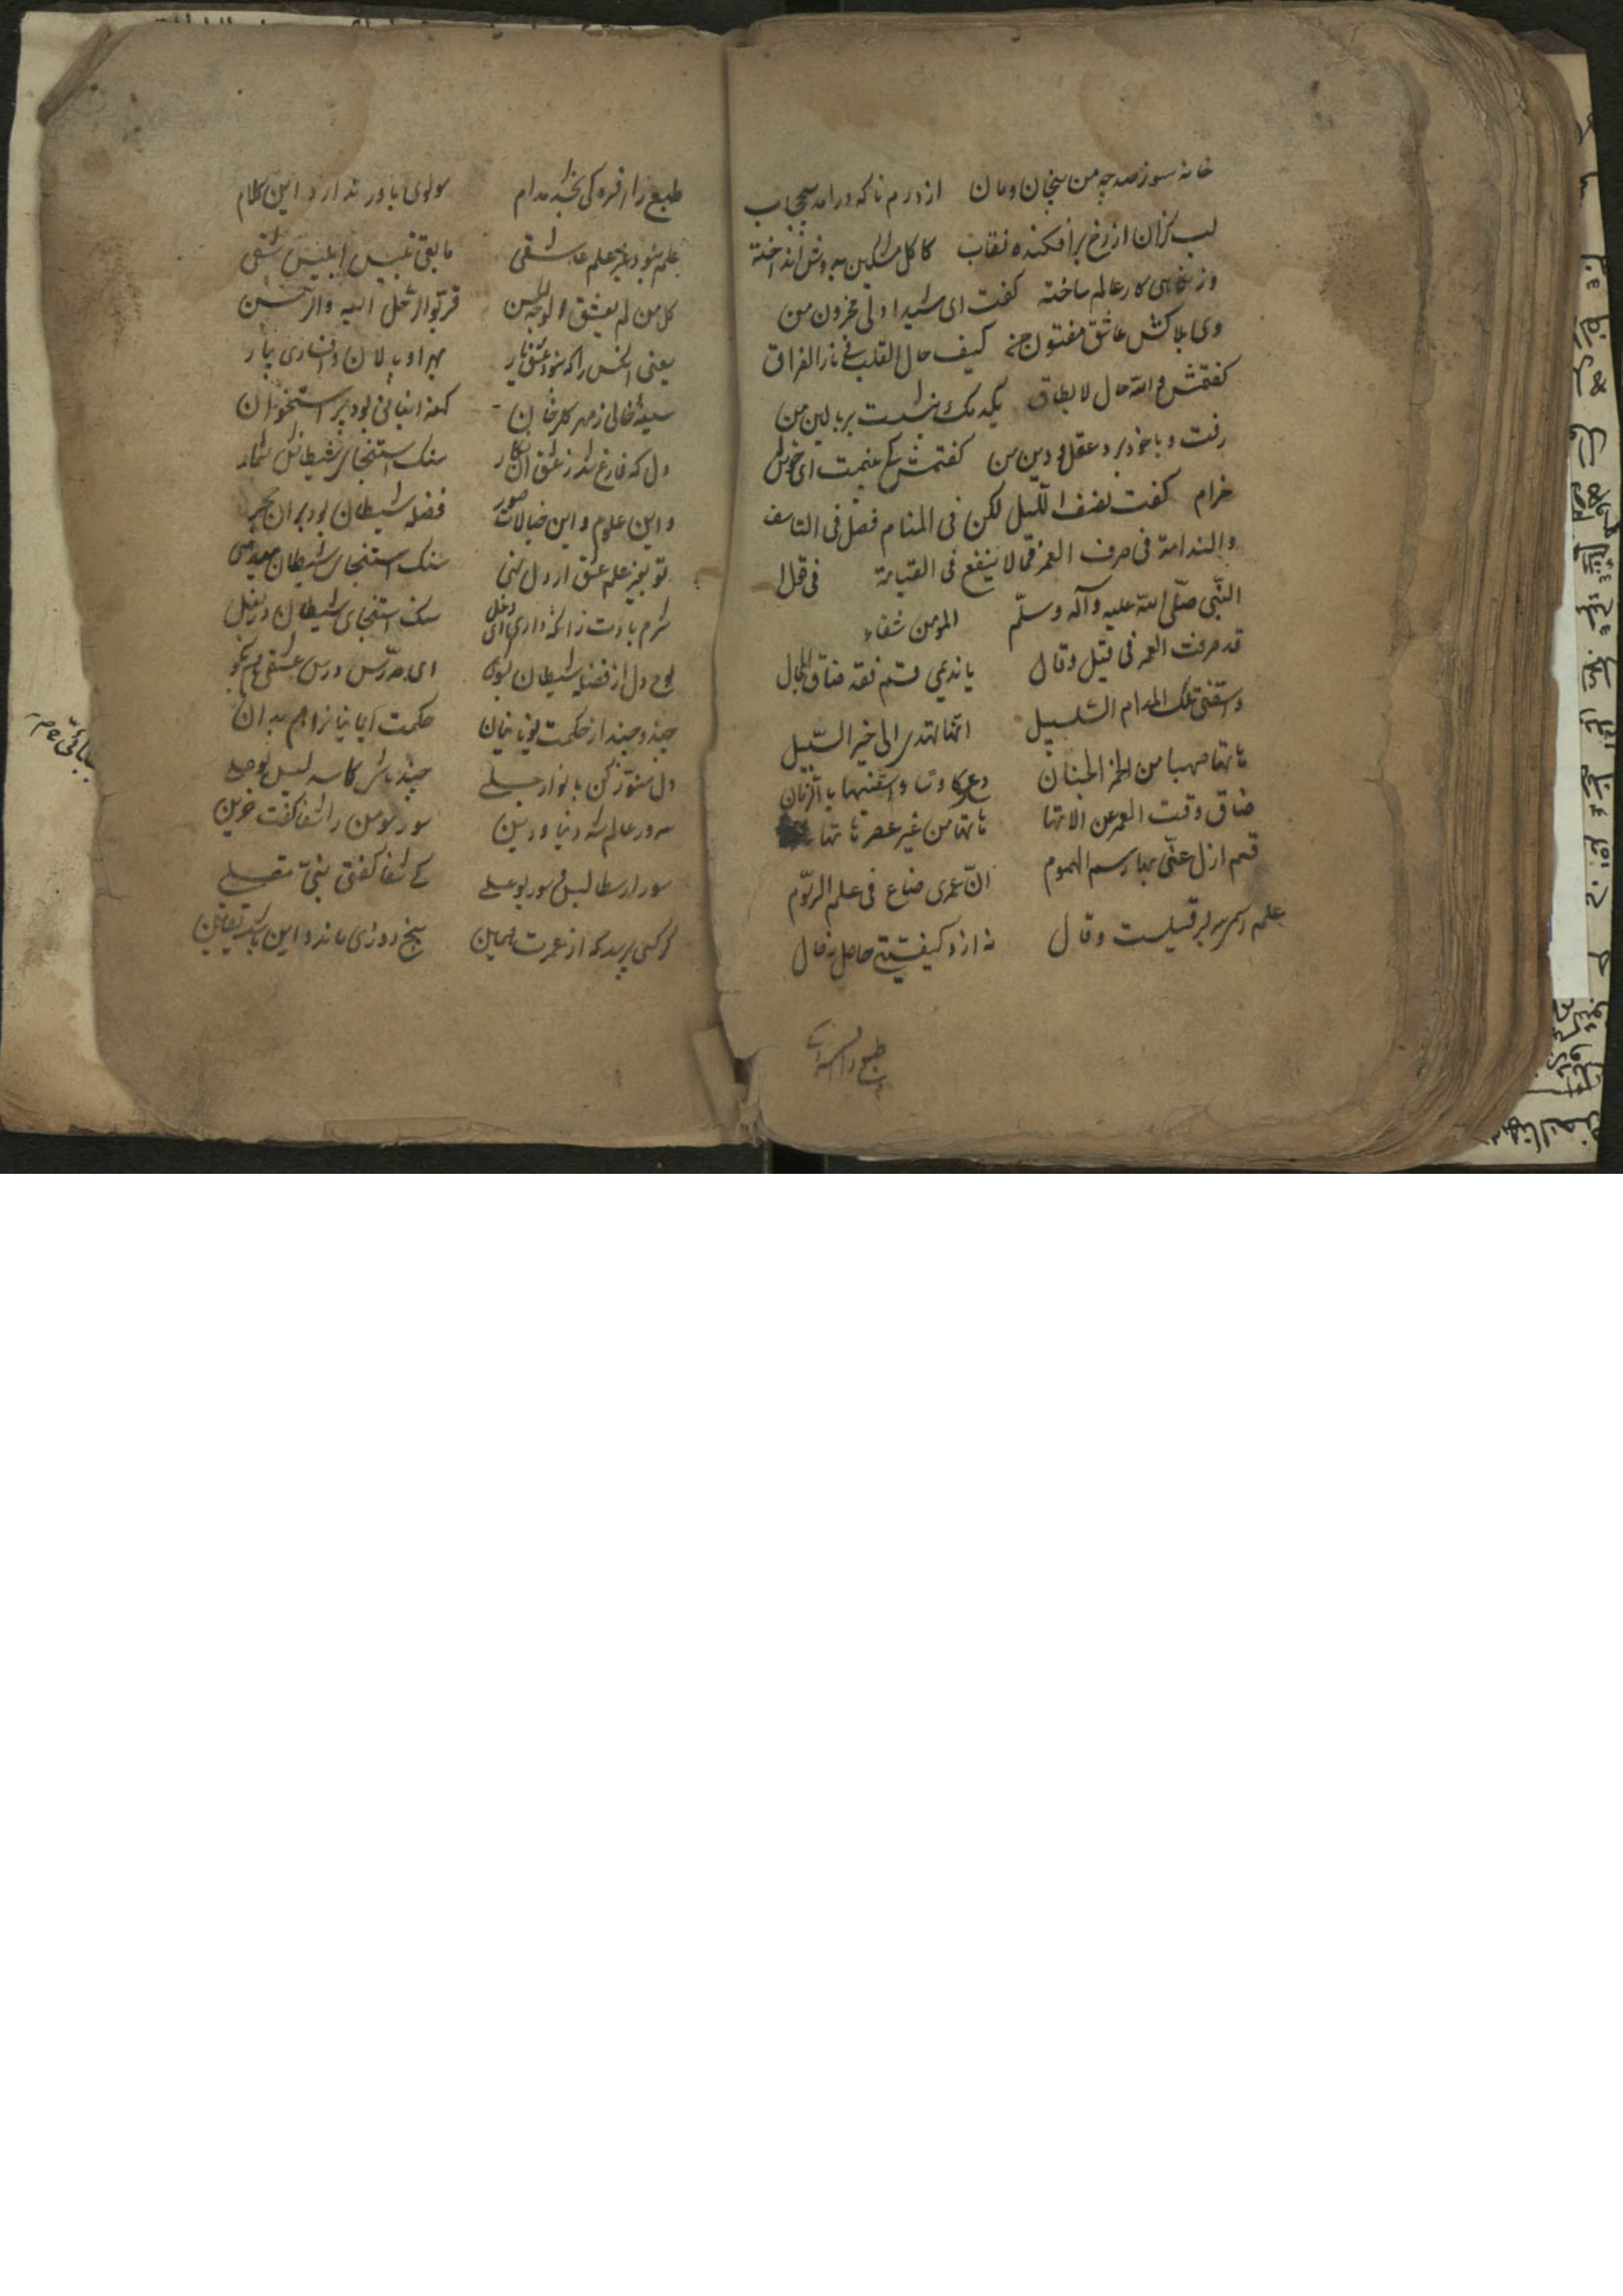 خانه سوز صد چو من بیخان و مان از درم ناکه در امد بیحجاب
لب کزان از رخ برافکنده نقاب کاکل مشکین بدوش انداخته
وز نکاهی کار عالم ساخته کفت ای شیدا دل محزون من
وی بلاکش عاشق مفتون من کیف حال القلب فی نار الفراق
کفتمش والله حال لا یطاق یکدمک بنشست بر بالین من
رفت و با خود برد عقل و دین من کفتمش کی بینمت ای خوش
خرام کفت نصف اللیل لکن فی المنام فصل فی التاسف
والندامة فی صرف العمر فیما لا ینفع فی القیامة فی قول
النبی صلی الله علیه وآله وسلم المومن شفاء
قد صرفت العمر فی قیل وقال یا ندیمی قم فقد ضاق المجال
واسقنی تلک المدام السلسبیل انها تهدی الی خیر السبیل
هاتها صهبا من خمر الجنان دع کاوسا واسقنیها بالدنان
ضاق وقت العمر عن الاتها هاتها من غیر عصر هاتها
قم ازل عنی بها رسم الهموم ان عمری ضاع فی علم الرسوم
علم رسمی سر بسر قیلست و قال نه ازو کیفیتی حاصل نه حال
طبع را افسرد
طبع را افسرد کی بخشد مدام مولوی باور ندارد این کلام
علم نبود غیر علم عاشقی ما بقی تلبیس ابلیس شقی
کل من لم یعشق الوجه الحسن قرب الرحل الیه والرسن
یعنی انکس را که نبود عشق یار بهر او پالان و افساری بیار
سینه خالی ز مهر کلرخان کهنه انبانی بود پر استخوان
دل که فارغ شد ز عشق ان نکار سنک استنجای شیطانش شمار
واین علوم و این خیالات صور فضله شیطان بود بر ان حجر
تو بغیر علم عشق ار دل نهی سنک استنجای شیطان میدهی
شرم بادت زانکه داری ای دغل سنک استنجای شیطان در بغل
لوح دل از فضله شیطان بشوی ای مدرس درس عشقی هم بکو
چند و چند از حکمت یونانیان حکمت ایمانیانرا هم بدان
دل منور کن بانوار جلی چند باشی کاسه لیس بوعلی
سرور عالم شه دنیا و دین سور مومن را شفا کفت حزین
سور ارسطالیس و سور بوعلی کی شفا کفتی نبی منجلی
کر کسی پرسد که از عمرت همین پنج روزی ماند و این باشد یقین